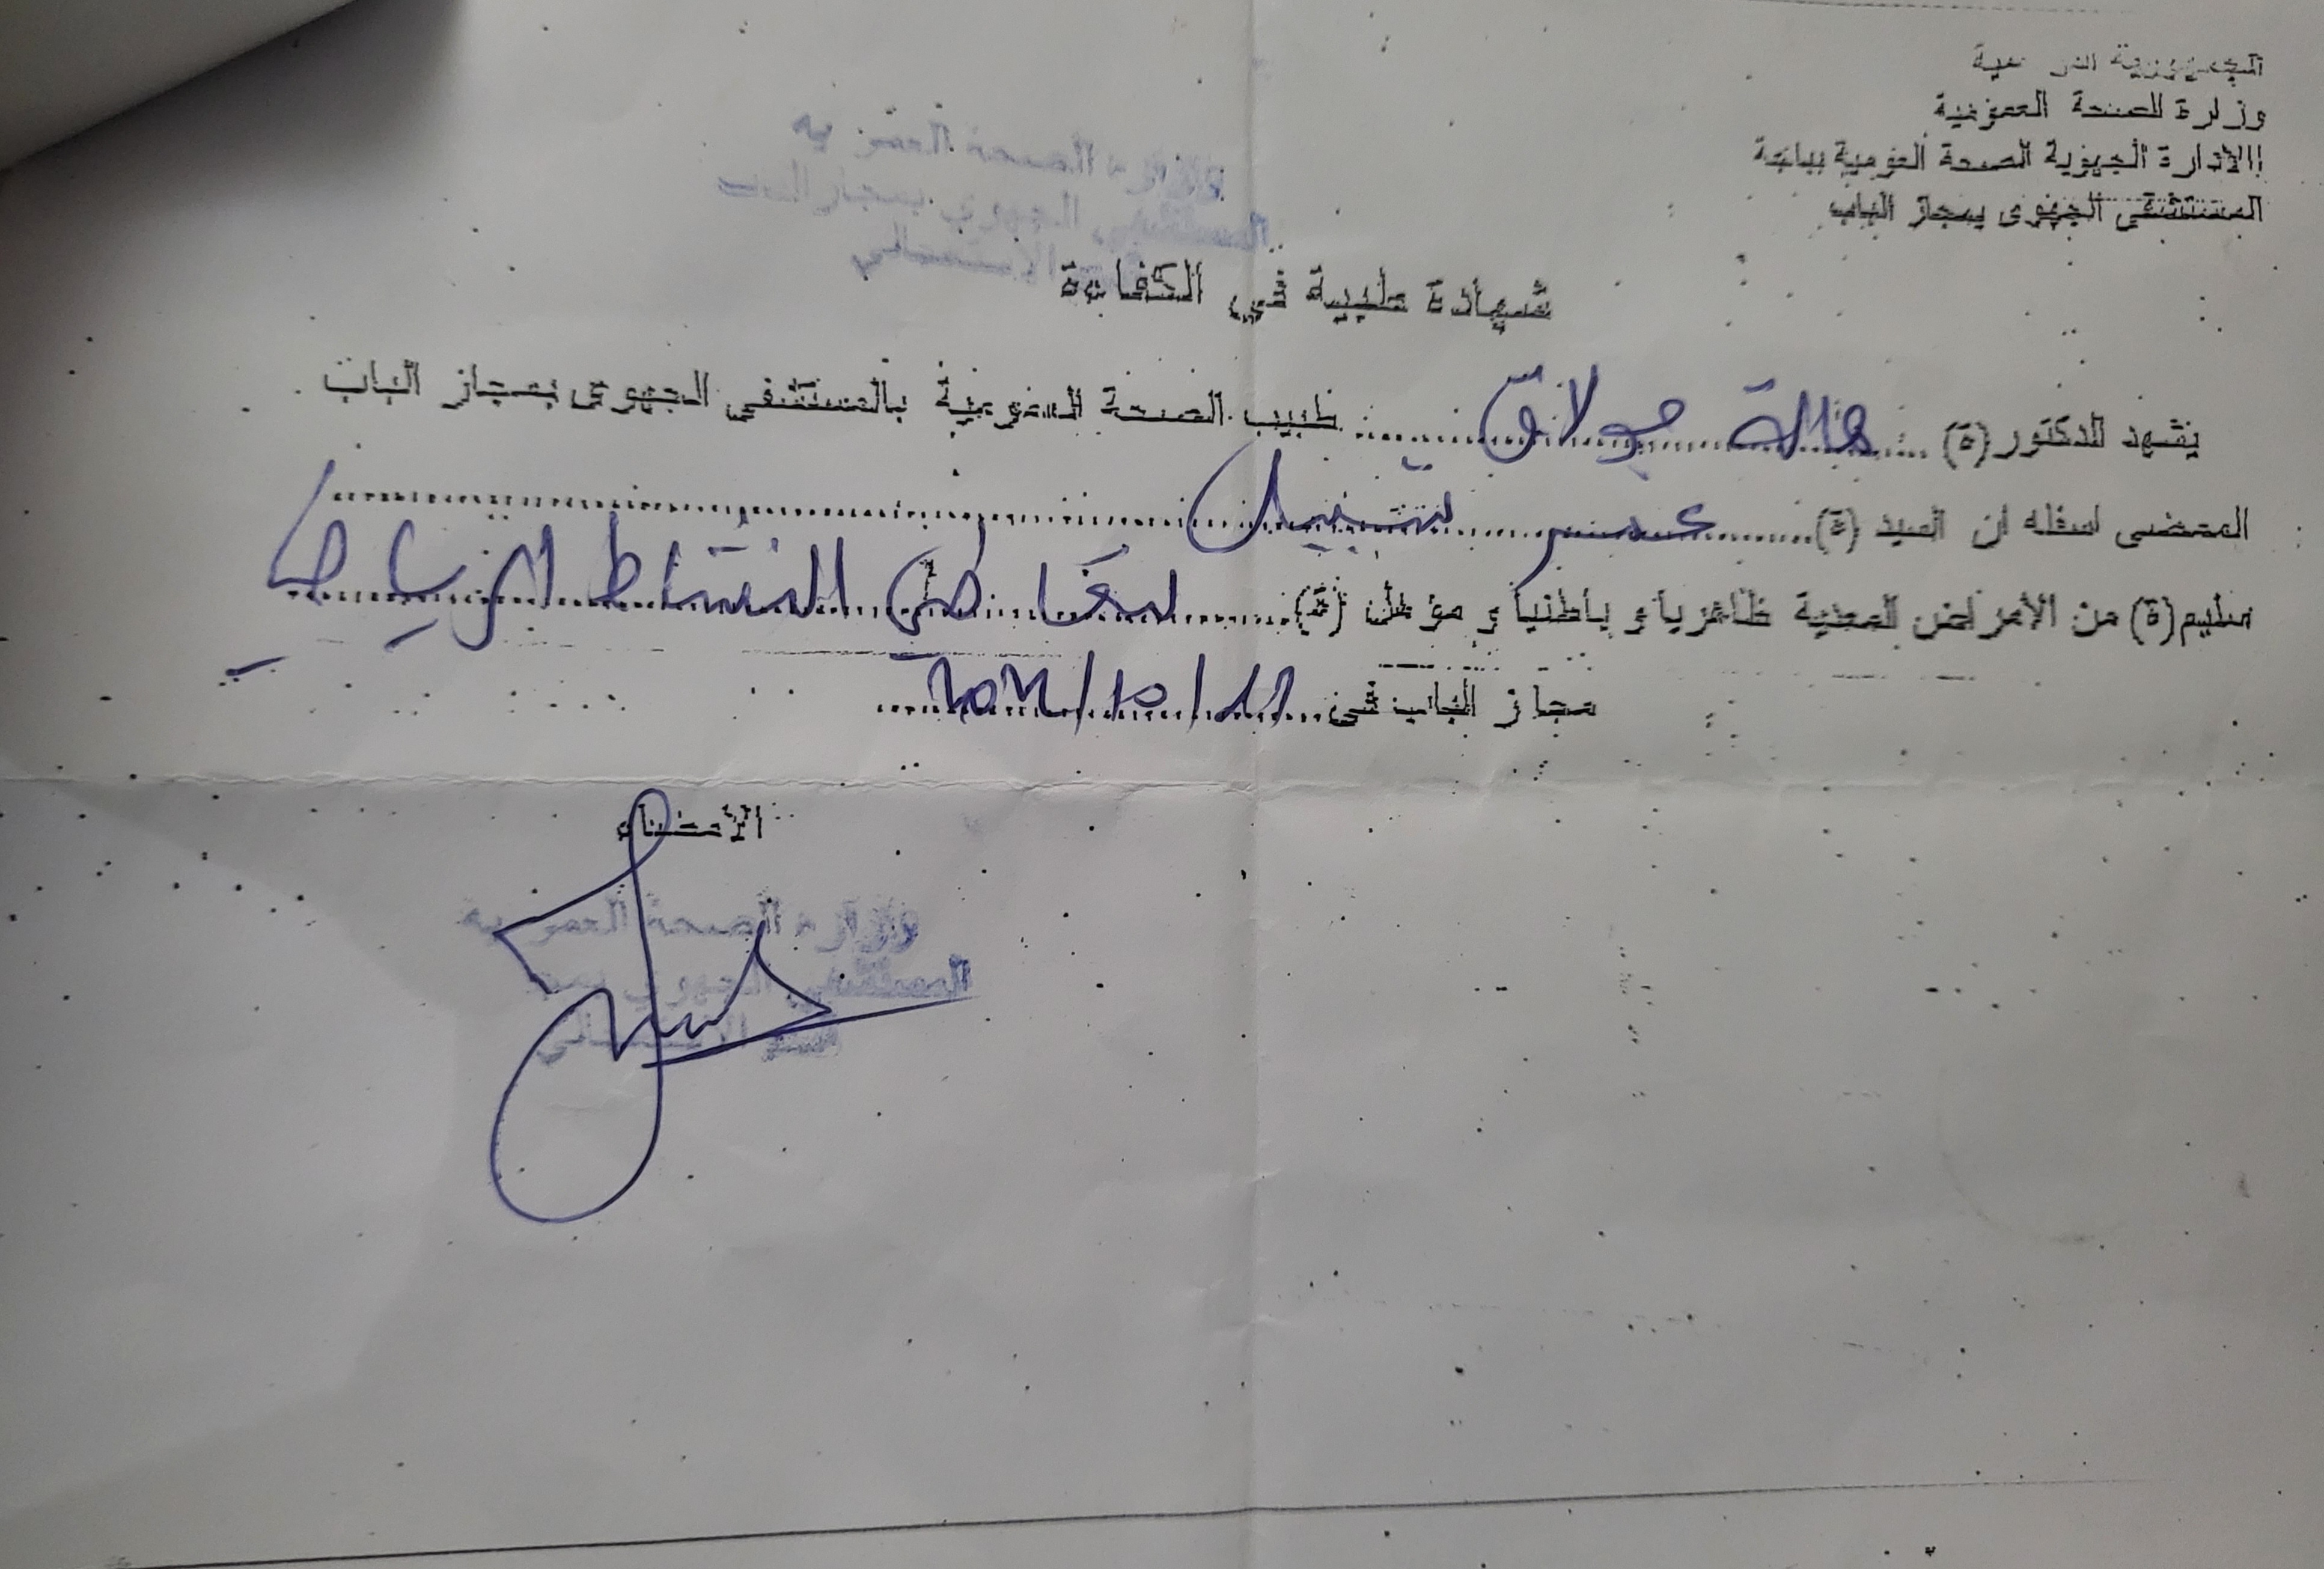 الجمهورية التونسية
وزارة الصحة العمومية
الادارة الجهوية للصحة العمومية بباجة
المستشفى الجهوي بمجاز الباب
وزارة الصحة العمومية
المستشفى الجهوي بمجاز الباب
الاستعجالي
شهادة طبية في الكفاءة
يشهد الدكتور (ة) هالة طبيب الصحة العمومية بالمستشفى الجهوي بمجاز الباب
الممضى اسفله ان السيد (ة)
سليم (ة) من الأمراض المعدية ظاهريا و باطنيا و مؤهل (ة) النشاط الرياضي
مجاز الباب في
الأمضاء
وزارة الصحة العمومية
المستشفى الجهوي
قسم الاستعجالي